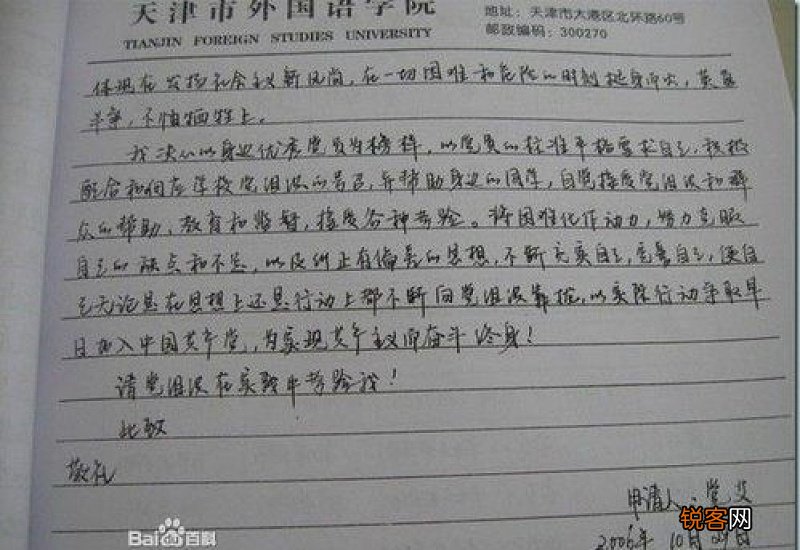 天津市外国语学院
TIANJIN FOREIGN STUDIES UNIVERSITY
地址：天津市大港区北环路60号
邮政编码：300270
体现在发扬社会主义新风尚，在一切困难和危险的时刻挺身而出，英勇
斗争，不怕牺牲上。
我决心以身边优秀党员为榜样，以党员的标准严格要求自己，积极
配合和响应学校党组织的号召，并帮助身边的同学，自觉接受党组织和群
众的帮助、教育和监督，接受各种考验。将困难化作动力，努力克服
自己的缺点和不足，以及纠正有偏差的思想，不断充实自己，完善自己，使自
己无论是在思想上还是行动上都不断向党组织靠拢，以实际行动争取早
日加入中国共产党，为实现共产主义而奋斗终身！
请党组织在实践中考验我！
此致
敬礼
申请人：
2006年10月
Bai百科
锐客网